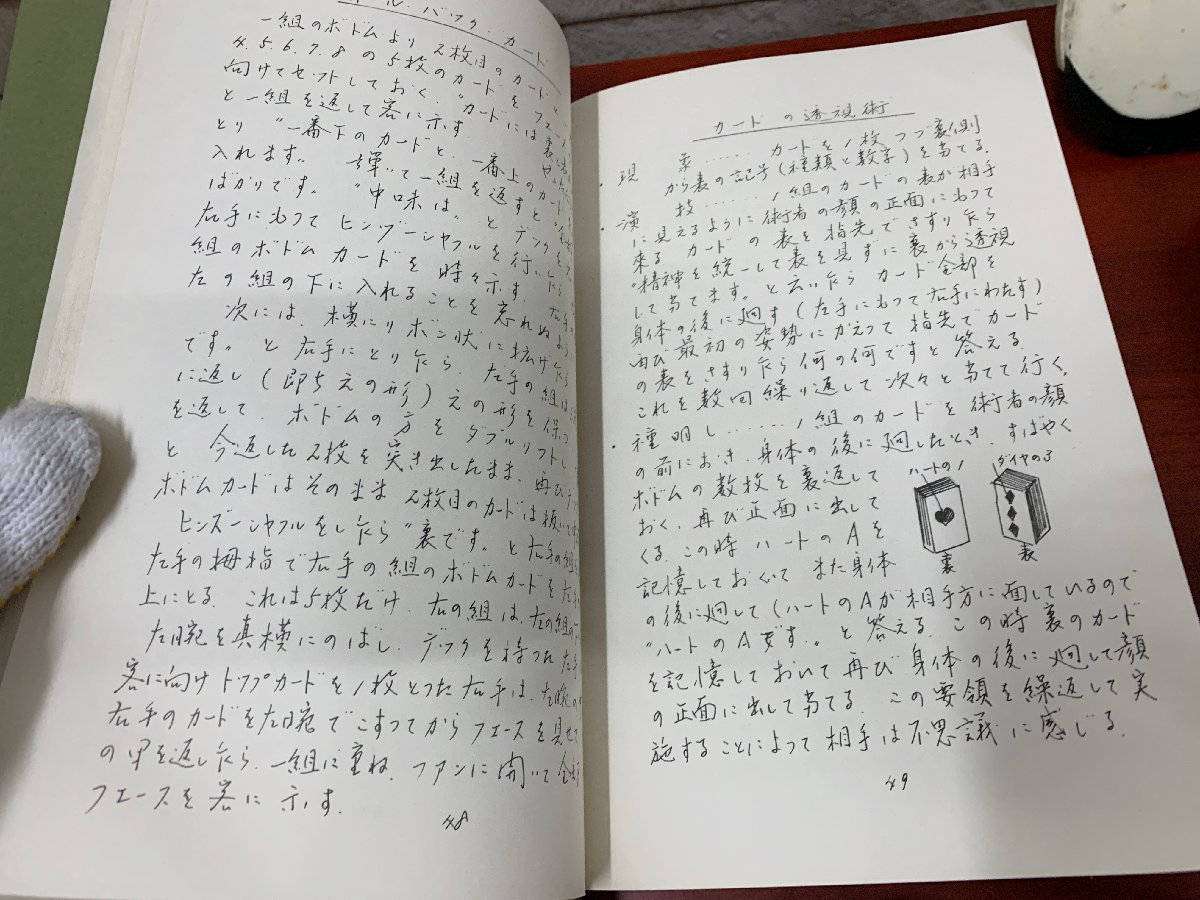 ル・バック・カード
一組のボトムより2枚目のカード
4.5.6.7.8の5枚のカードをフェー
向けてセットしておく。"カードには裏と
と一組を返して客に示す
とり"一番下のカードと、一番上のカード
入れます。 弾いて一組を返すと
ばかりです。"中味は。とデックを
左手にもって ヒンヅーシャフルを行いたら
組のボドムカードを時々示す。右手の
左の組の下に入れることを忘れぬよう
次には、横にリボン状に拡げたら
です。と右手にとりたら、左手の組は
に返し(即ち元の形)元の形を保つ
を返して、ボドムの方をダブルリフトし
と 今返した2枚を突き出したまま、再び
ボドムカードはそのまま 2枚目のカードは
ヒンズーシャフルをしたら"裏です。と右手の組
左手の拇指で右手の組のボドムカードを左
上にとる。これは5枚だけ、右の組は、左の組の
左腕を真横にのばし、デックを持つた左手
客に向けトップカードを1枚とつた右手は、左腕の
右手のカードを左腕でこすつてからフェースを見せて
の甲を返したら、一組に重ね、ファンに開いて全
フェースを客に示す。
48
カードの透視術
・現 象‥‥‥カードを1枚づつ裏側
から表の記号(種類と数字)を当てる。
・演 技‥‥‥1組のカードの表が相手
に見えるように術者の顔の正面にもつて
来る カードの表を指先でさすりたら
"精神を統一して表を見ずに裏から透視
して当てます。と云いたら カード全部を
身体の後に廻す(左手にもつて右手にわたす)
再び最初の姿勢にかえつて指先でカード
の表をさすりたら何の何ですと答える。
これを数回繰り返して次々と当てて行く。
・種明し‥‥‥1組のカードを術者の顔
の前におき、身体の後に廻したとき、すばやく
ボドムの数枚を裏返して
おく、再び正面に出して
くる、この時 ハートのAを
記憶しておいて また身体
ハートの1
ダイヤの3
裏
表
の後に廻して(ハートのAが相手方に面しているので
"ハートのAです。と答える。この時裏のカード
を記憶しておいて再び身体の後に廻して顔
の正面に出して当てる。この要領を繰返して実
施することによって相手は不思議に感じる。
49